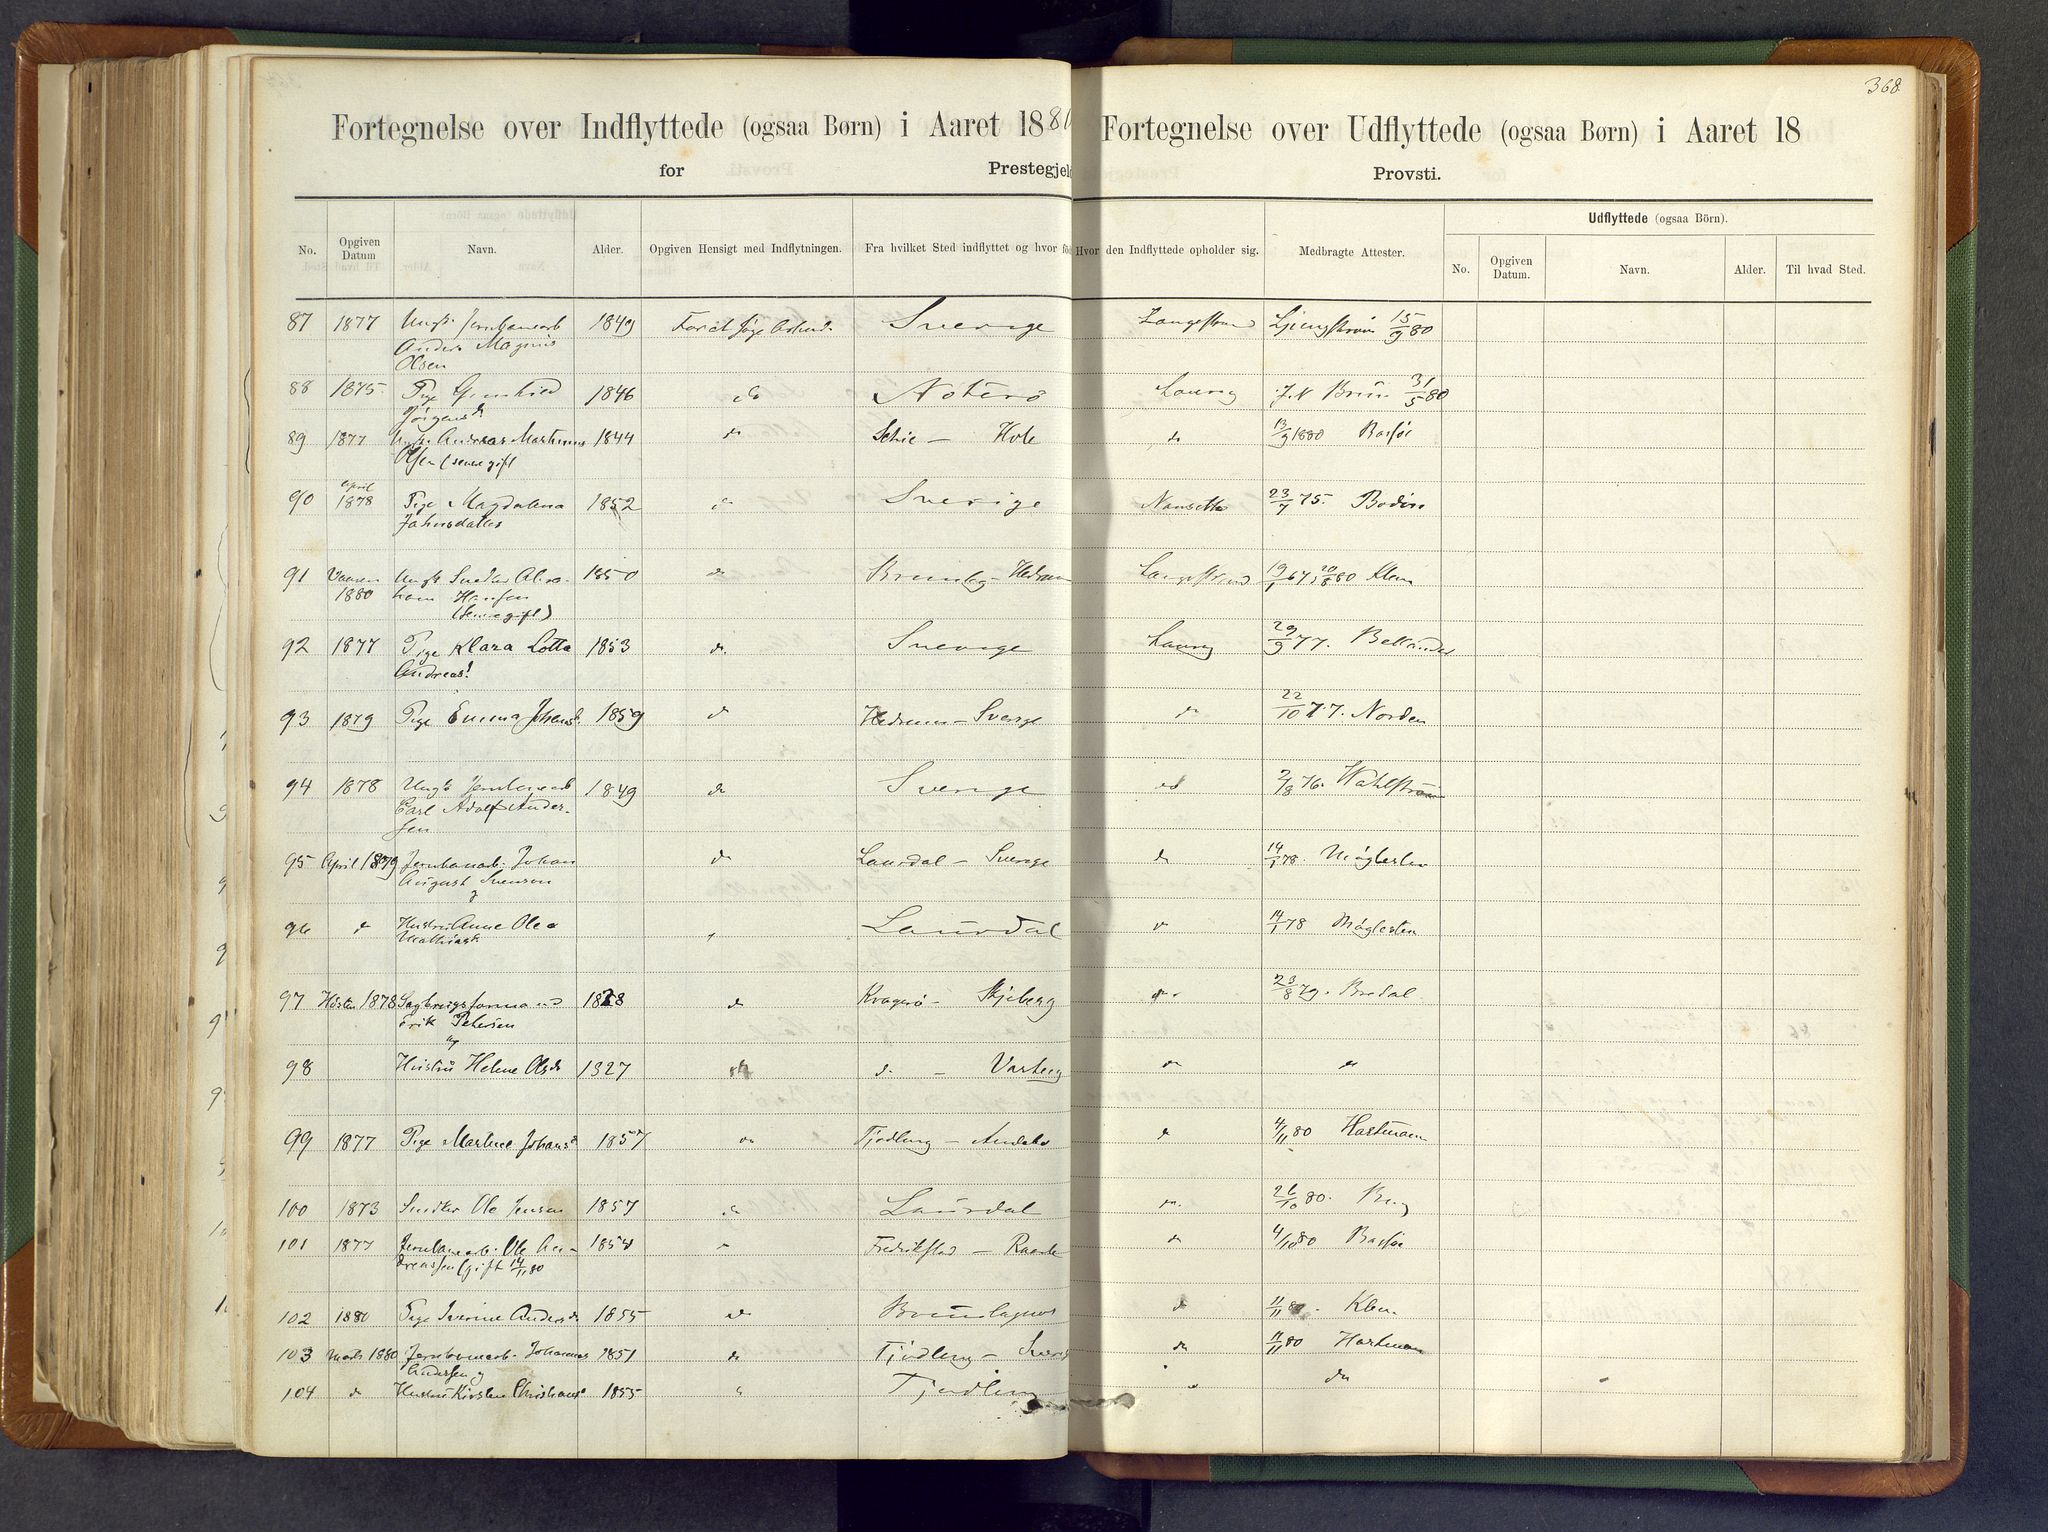 368.
Fortegnelse over Indflyttede (ogsaa Børn) i Aaret 1880 Fortegnelse over Udflyttede (ogsaa Børn) i Aaret 18
for Prestegjeld Provsti.
Udflyttede (ogsaa Börn).
No. Opgiven Datum Navn. Alder. Opgiven Hensigt med Indflytningen. Fra hvilket Sted indflyttet og hvor fö Hvor den Indflyttede opholder sig. Medbragte Attester. No. Opgiven Datum. Navn. Alder. Til hvad Sted.
87 1877 Ungk. Jernbanearb 1849 For at søge Arbeide Sverige Langestrand Ljungström 15/9 80
Anders Magnus
Olsen
88 1875 Pige Gunhild 1846 do Noterö Laurvig J. N Brun 31/5 80
Jörgensd
89 1877 Ungk. Andreas Martinus 1844 do Schie - Hole do 13/9 1880 Basföe
Olsen (senere gift
90 April 1878 Pige Magdalena 1852 do Sverige Nansetbo 23/7 75. Bodin
Johnsdatter
91 Vaaren 1880 Ungk Snedker Abra- 1850 do Brunlag - Hedrum Langestrand 19/1 67, 20/8 80 Klem
ham Hansen
(senere gift)
92 1877 Pige Klara Lotta 1853 do. Sverige Laurvig 29/9 77. Bellander
Andreasd
93 1879 Pige Emma Johansd. 1859 do Hedrum - Sverige do 22/10 77. Norden
94 1878 Ungk Jernbanearb 1849 do Sverige do 2/8 76. Wahlström
Carl Adolf Ander-
sen
95 April 1879 Jernbanarb. Johan 1878 do Laurdal - Sverige do 14/1 78. Møglesten
August Svenson
g
96 do Hustru Anne Olea do Laurdal do 14/1 78 Møglesten
Mathiask
97 Høsten 1878 Sagbrugsformand 1828 do Kragerö - Skjeberg do 23/8 79. Bredal
Erik Petersen
og
98 Hustru Helene Olsdr 1827 do do - Varteig do do
99 1877 Pige Martine Johansd 1857 do Tjødling - do 4/11 80 Hartmann
100 1873 Snedker Ole Jensen 1857 do Laurdal do. 26/10 80. Berg
101 1877 Jernbanearb. Ole An- do Fredrikstad - Raade do 4/10 80 Basföe
dreassen (gift 14/11 80
102 1880 Pige Iverine Andersd 1855 do Brunlagnes do 11/11 80. Klem
103 Marts 1880 Jernbanearb. Johannes 1851 do Tjødling - Sverige do 11/11 80 Hartman
Andersen og
104 do Hustru Kirsten Christiansd 1855 do Tjødling do do